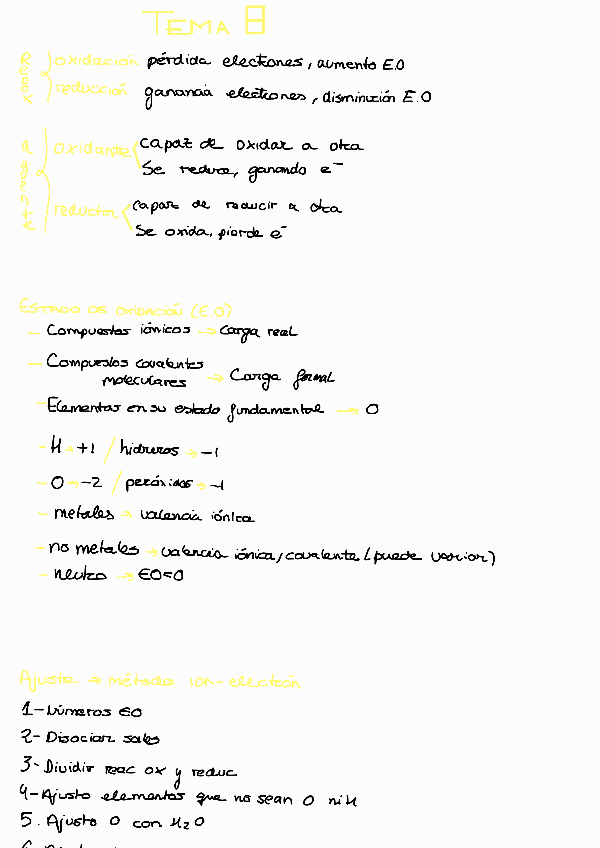 TEMA 8
REDOX
oxidación pérdida electrones, aumento E.O
reducción ganancia electrones, disminución E.O
oxidante capaz de oxidar a otra
Se reduce, ganando e⁻
reductor capaz de reducir a otra
Se oxida, pierde e⁻
ESTADO DE OXIDACIÓN (E.O)
- Compuestos iónicos → Carga real
- Compuestos covalentes
moleculares → Carga formal
- Elementos en su estado fundamental → 0
- H → +1 / hidruros → -1
- O → -2 / peróxidos → -1
- metales → valencia iónica
- no metales → valencia iónica/covalente (puede variar)
- neutro → EO=0
Ajuste → método ion-electrón
1- Números EO
2- Disociar sales
3- Dividir reac ox y reduc
4- Ajusto elementos que no sean O ni H
5. Ajusto O con H₂O